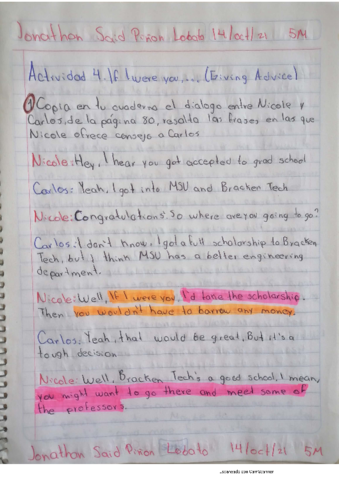 Jonathan Said Piñon Lobato 14/oct/21 5M
Actividad 4. If I were you.... (Giving Advice)
① Copia en tu cuaderno el dialogo entre Nicole y
Carlos, de la página 80, resalta las frases en las que
Nicole ofrece consejo a Carlos
Nicole: Hey, I hear you got accepted to grad school
Carlos: Yeah, I got into MSU and Bracken Tech.
Nicole: Congratulations! So where are you going to go?
Carlos: I don't know, I got a full scholarship to Bracken
Tech, but I think MSU has a better engineering
department.
Nicole: Well, If I were you, I'd take the scholarship.
Then you wouldn't have to borrow any money.
Carlos: Yeah, that would be great, But it's a
tough decision
Nicole: Well, Bracken Tech's a good school, I mean,
you might want to go there and meet some of
the professors.
Jonathan Said Piñon Lobato 14/oct/21 5M